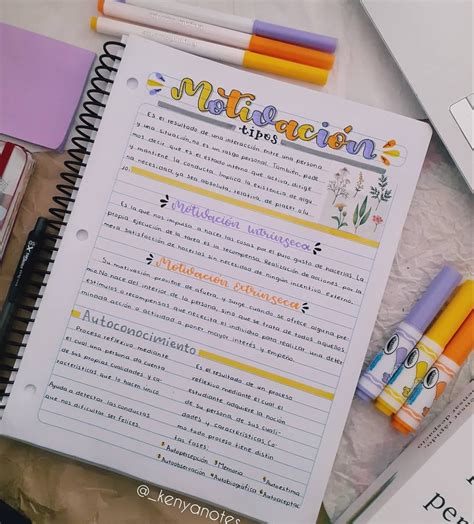 Motivación
tipos
Es el resultado de una interacción entre una persona
y una situación, no es un rasgo personal. También, pode
mos decir, que es el estado interno que activa, dirige
y mantiene la conducta. Implica la existencia de algu
na necesidad, ya sea absoluta, relativa, de placer o
Motivación intrínseca
Es la que nos impulsa a hacer las cosas por el puro gusto de hacerlas. La
propia ejecución de la tarea es la recompensa. Realización de acciones por la
mera satisfacción de hacerlas sin necesidad de ningún incentivo externo.
Motivación extrínseca
Su motivación proviene de afuera, y surge cuando se ofrece alguna pre
mio. No nace del interior de la persona, sino que se trata de todos aquellos
estímulos o recompensas que necesita el individuo para realizar una deter
minada acción o actividad o poner mayor interés y empeño.
Autoconocimiento
Proceso reflexivo mediante
el cual una persona da cuenta
de sus propias cualidades y ca
racterísticas que lo hacen único
Ayuda a detectar las conductas
que nos dificultar ser felices.
Es el resultado de un proceso
reflexivo mediante el cual el
estudiante adquiere la noción
de su persona, de sus cuali
dades y características. Co
mo todo proceso tiene distin
tas fases:
1 Autopercepción 3 Memoria 5 Autoestima
2 Autoobservación 4 Autobiográfica 6 Autoaceptac
@_kenyanotes